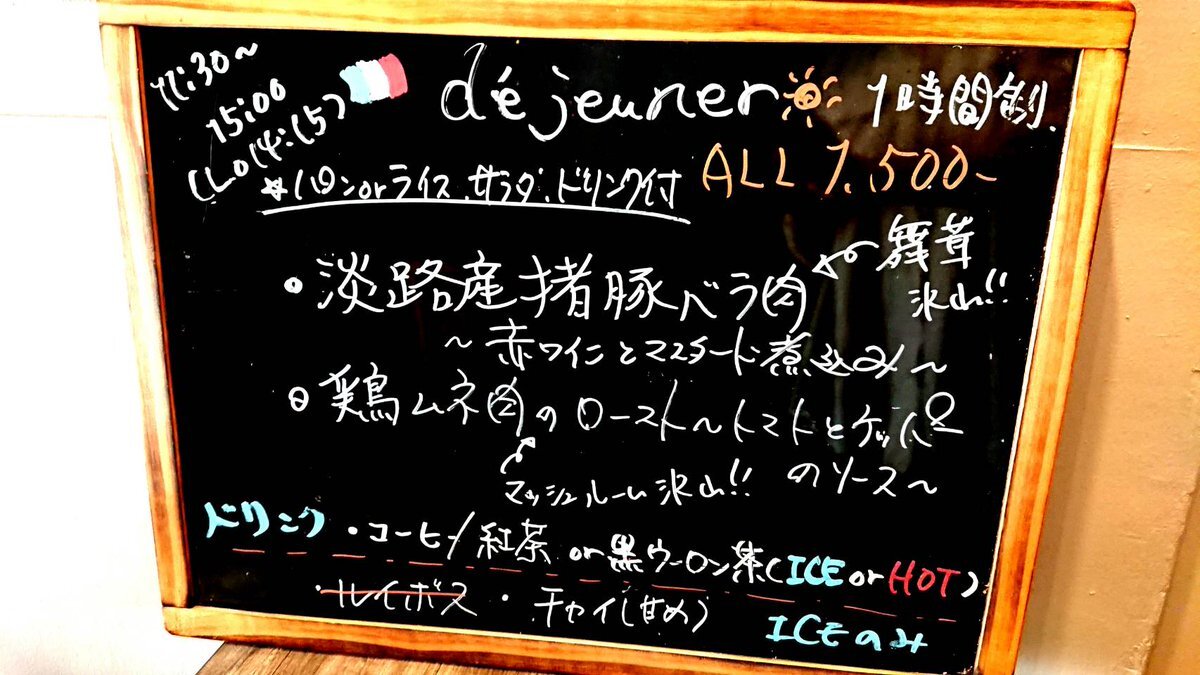 11:30~
15:00
(L.O 14:15)
déjeuner
1時間制.
ALL 1.500-
☆パンorライス.サラダ.ドリンク付
・淡路産猪豚バラ肉
舞茸
沢山!!
~赤ワインとマスタード煮込み~
・鶏ムネ肉のロースト~トマトと
のソース~
マッシュルーム沢山!!
ドリンク ・コーヒー/紅茶 or 黒ウーロン茶(ICE or HOT)
・ルイボス ・チャイ(甘め)
ICEのみ